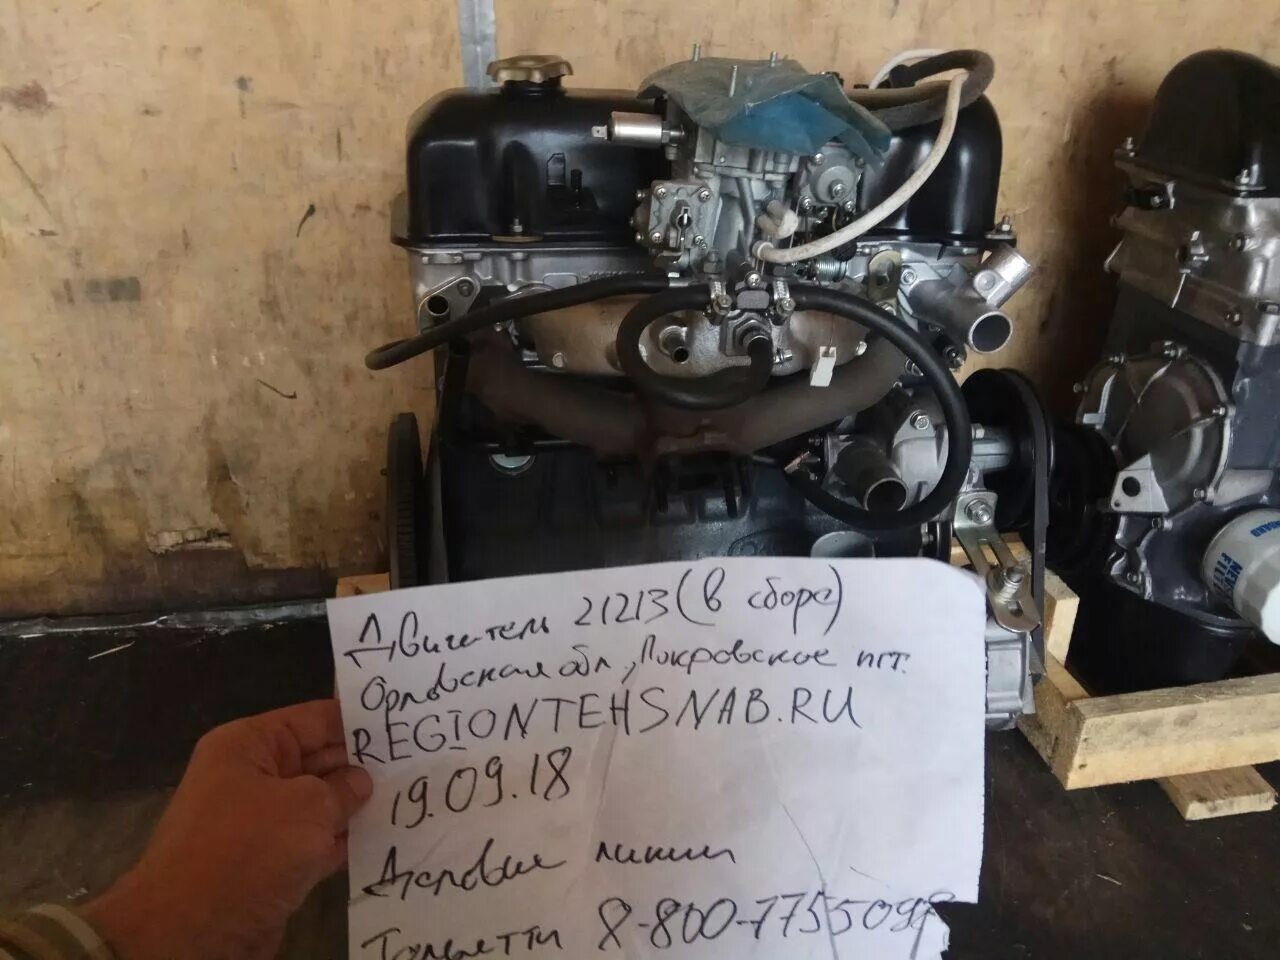 Двигатель 21213 (в сборе)
Орловская обл., Покровское пгт.
REGIONTEHSNAB.RU
19.09.18
Деловые линии
Тольятти 8-800-7755098